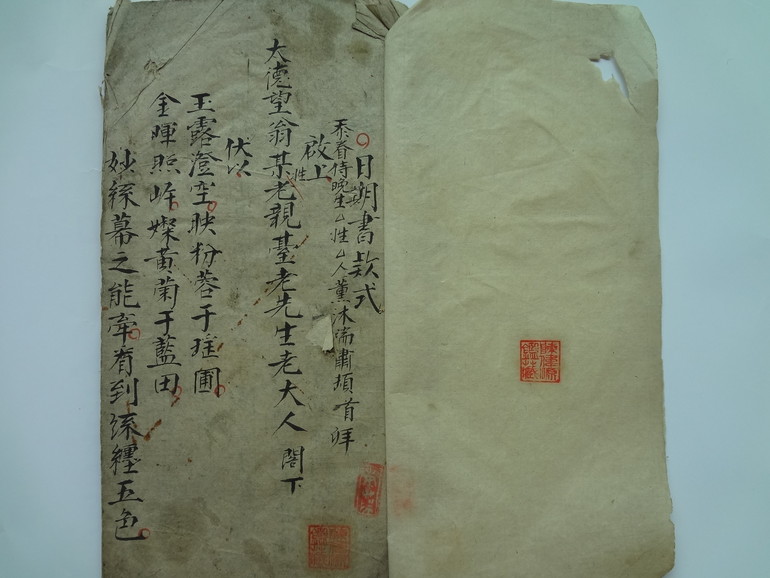 日期書款式
忝眷侍晚生ム性ム人薰沐端肅頓首拜
啟上
大德望翁某性老親臺老先生老大人 閣下
伏以
玉露澄空映粉蓉于瑶圃
金暉照岸燦黃菊于藍田
妙絲幕之能牽有到絲纏五色